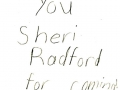 You
Sheri
Radford
for coming